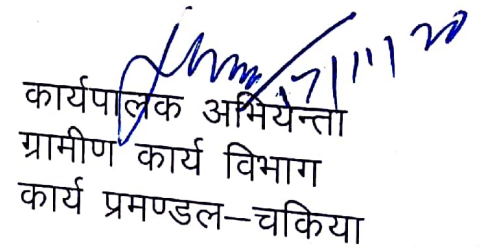 17/11/20
कार्यपालक अभियन्ता
ग्रामीण कार्य विभाग
कार्य प्रमण्डल–चकिया